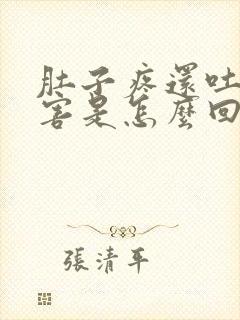 肚子疼還吐
害是怎麼回
張清平